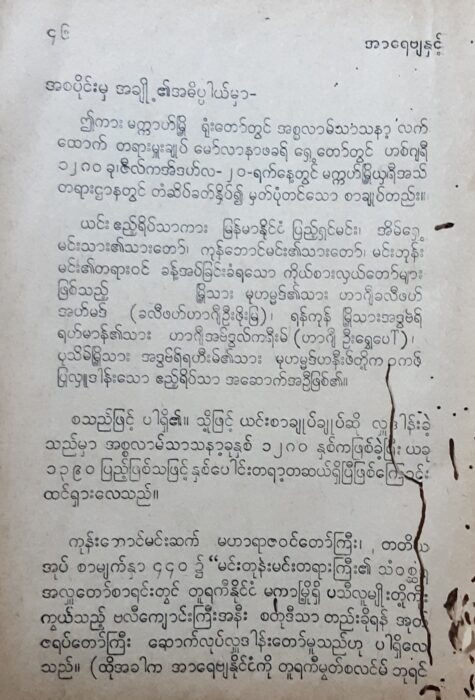 ၄၆
အာရေဗျနှင့်
အစပိုင်းမှ အချို့၏အဓိပ္ပါယ်မှာ–
ဤကား မက္ကာဟ်မြို့ ရုံးတော်တွင် အစ္စလာမ်သာသနာ့ လက်
ထောက် တရားမှူးချုပ် မော်လာနာဖခရိ ရှေ့တော်တွင် ဟစ်ဂျရီ
၁၂၈၀ ခု၊ ဇီလ်ကအ်ဒဟ်လ–၂၀–ရက်နေ့တွင် မက္ကဟ်မြို့ယူရီအသိ
တရားဌာနတွင် တံဆိပ်ခတ်နှိပ်၍ မှတ်ပုံတင်သော စာချုပ်တည်း။
ယင်း ဧည့်ရိပ်သာကား မြန်မာနိုင်ငံ ပြည့်ရှင်မင်း၊ အိမ်ရှေ့
မင်းသား၏သားတော်၊ ကုန်းဘောင်မင်း၏သားတော်၊ မင်းတုန်း
မင်း၏တရားဝင် ခန့်အပ်ခြင်းခံရသော ကိုယ်စားလှယ်တော်များ
ဖြစ်သည့် မြို့သား မုဟမ္မဒ်၏သား ဟာဂျီခလီဖဟ်
အဟ်မဒ် (ခလီဖဟ်ဟာဂျီဦးဖိုးမြ)၊ ရန်ကုန် မြို့သားအဒ္ဗဗ်ရ်
ရဟ်မာန်၏သား ဟာဂျီအဗ်ဒွလ်ကရီးမ် (ဟာဂျီ ဦးရွှေပေါ်)၊
ပုသိမ်မြို့သား အဒ္ဗဗ်ရ်ရဟီးမ်၏သား မုဟမ္မဒ်ဟနီးဖ်တို့က ဝကဖ်
ပြုလှူဒါန်းသော ဧည့်ရိပ်သာ အဆောက်အဦဖြစ်၏။
စသည်ဖြင့် ပါရှိ၏။ သို့ဖြင့် ယင်းစာချုပ်ချုပ်ဆို လှူဒါန်းခဲ့
သည်မှာ အစ္စလာမ်သာသနာ့ခုနှစ် ၁၂၈၀ နှစ်ကဖြစ်ခဲ့ပြီး ယခု
၁၃၉၀ ပြည့်ဖြစ်သဖြင့် နှစ်ပေါင်းတရာ့တဆယ်ရှိပြီဖြစ်ကြောင်း
ထင်ရှားလေသည်။
ကုန်းဘောင်မင်းဆက် မဟာရာဇဝင်တော်ကြီး၊ တတိယ
အုပ် စာမျက်နှာ ၄၄၀ ၌ “မင်းတုန်းမင်းတရားကြီး၏ သံဝစ္ဆ
အလှူတော်စာရင်းတွင် တူရကီနိုင်ငံ မက္ကာမြို့ရှိ ပသီလူမျိုးတို့ကိုး
ကွယ်သည့် ဗလီကျောင်းကြီးအနီး စတုဒီသာ တည်းခိုရန် အုတ်
ဇရပ်တော်ကြီး ဆောက်လုပ်လှူဒါန်းတော်မူသည်ဟု ပါရှိလေ
သည်။ (ထိုအခါက အာရေဗျနိုင်ငံကို တူရကီမွတ်စလင်မ် ဘုရင်